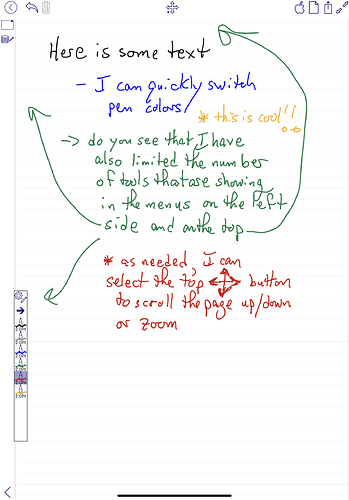 Here is some text
- I can quickly switch
pen colors/
* this is cool!!
-> do you see that I have
also limited the number
of tools that are showing
in the menus on the left
side and on the top
* as needed, I can
select the top button
to scroll the page up/down
or zoom